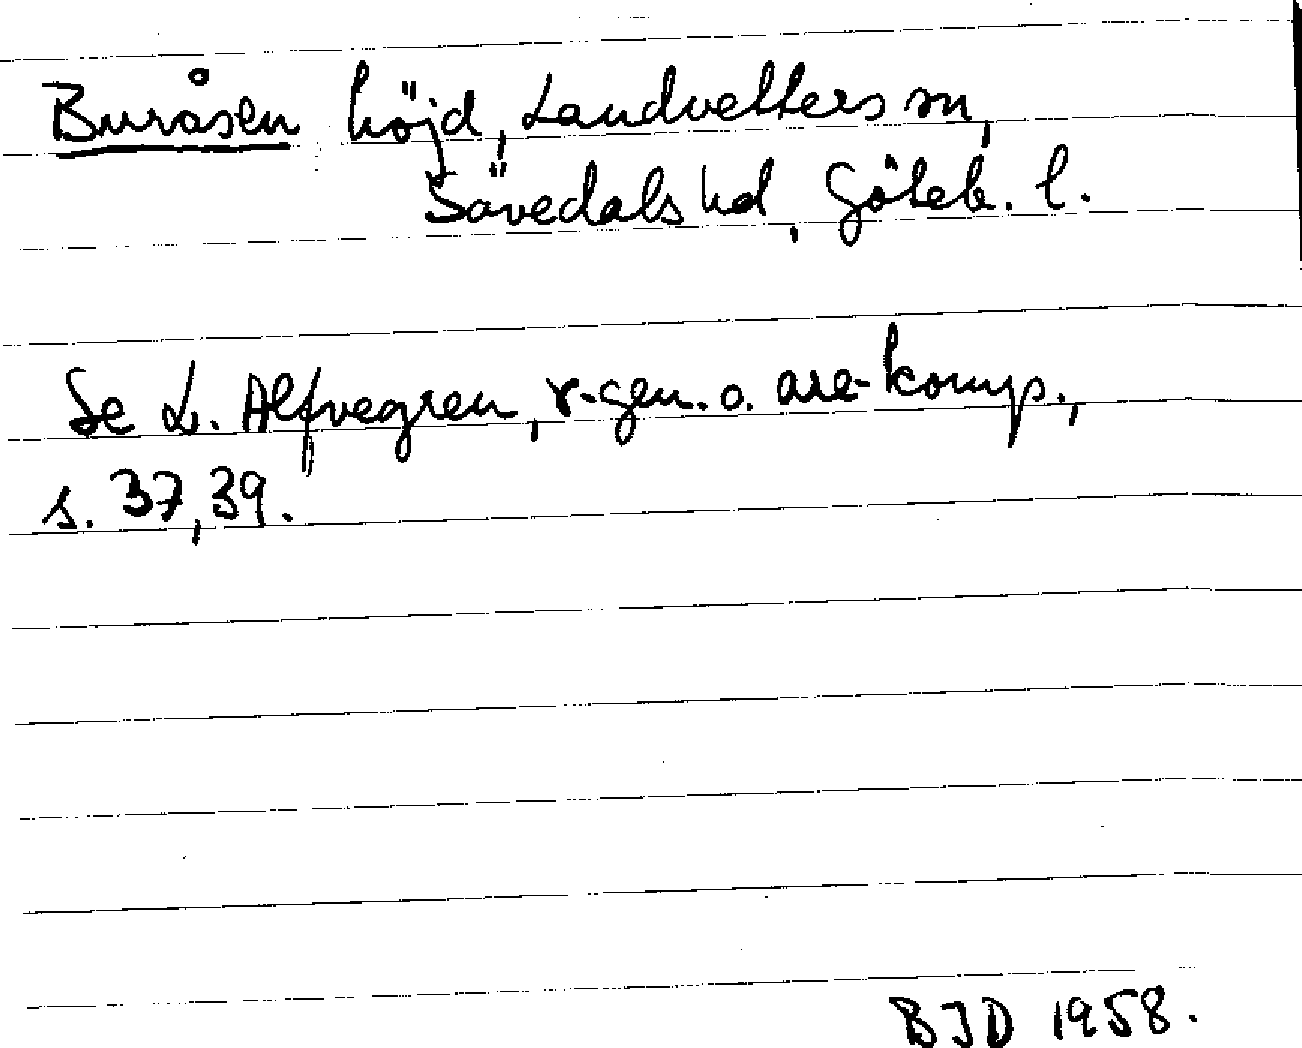 Buråsen höjd, Landvetters sn,
Sävedals hd, Göteb. l.
Se L. Alfvegren, r-gen. o. are-komp.,
s. 37, 39.
BJD 1958.